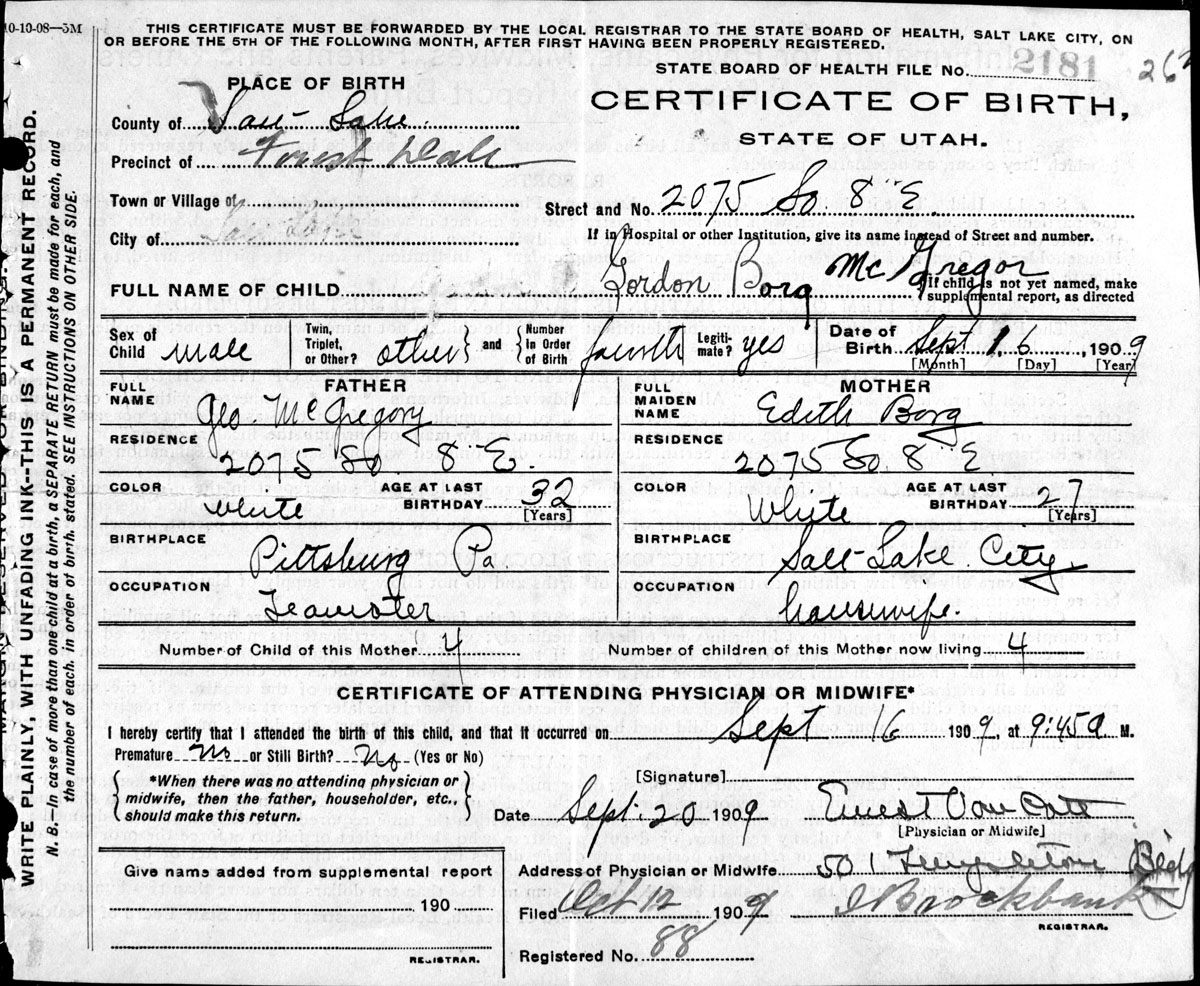 10-10-08—5M
THIS CERTIFICATE MUST BE FORWARDED BY THE LOCAL REGISTRAR TO THE STATE BOARD OF HEALTH, SALT LAKE CITY, ON
OR BEFORE THE 5TH OF THE FOLLOWING MONTH, AFTER FIRST HAVING BEEN PROPERLY REGISTERED.
STATE BOARD OF HEALTH FILE No. 2181
CERTIFICATE OF BIRTH,
STATE OF UTAH.
PLACE OF BIRTH
County of Salt Lake.
Precinct of Forest Dale
Town or Village of
City of Salt Lake
Street and No. 2075 So 8" E.
If in Hospital or other Institution, give its name instead of Street and number.
FULL NAME OF CHILD Gordon Borg McGregor
If child is not yet named, make
supplemental report, as directed
Sex of Child male
Twin, Triplet, or Other? other and Number In Order of Birth fourth
Legitimate? yes
Date of Birth Sept 16, 1909
[Month] [Day] [Year]
FATHER
FULL NAME Geo. McGregory
RESIDENCE 2075 So. 8" E.
COLOR White AGE AT LAST BIRTHDAY 32 [Years]
BIRTHPLACE Pittsburg Pa
OCCUPATION Teamster
MOTHER
FULL MAIDEN NAME Edith Borg
RESIDENCE 2075 So. 8" E
COLOR White AGE AT LAST BIRTHDAY 27 [Years]
BIRTHPLACE Salt Lake City
OCCUPATION housewife.
Number of Child of this Mother 4
Number of children of this Mother now living 4
CERTIFICATE OF ATTENDING PHYSICIAN OR MIDWIFE*
I hereby certify that I attended the birth of this child, and that it occurred on Sept 16 1909, at 9:45 a M.
Premature No or Still Birth? No (Yes or No)
*When there was no attending physician or
midwife, then the father, householder, etc.,
should make this return.
[Signature]
Date Sept. 20 1909 Ernest Van Cott
[Physician or Midwife]
Give name added from supplemental report
190
REGISTRAR.
Address of Physician or Midwife 501 Templeton Bldg
Filed Oct 12 1909 Brockbank
REGISTRAR.
Registered No. 88
WRITE PLAINLY, WITH UNFADING INK--THIS IS A PERMANENT RECORD.
N. B.—In case of more than one child at a birth, a SEPARATE RETURN must be made for each, and
the number of each, in order of birth, stated. SEE INSTRUCTIONS ON OTHER SIDE.